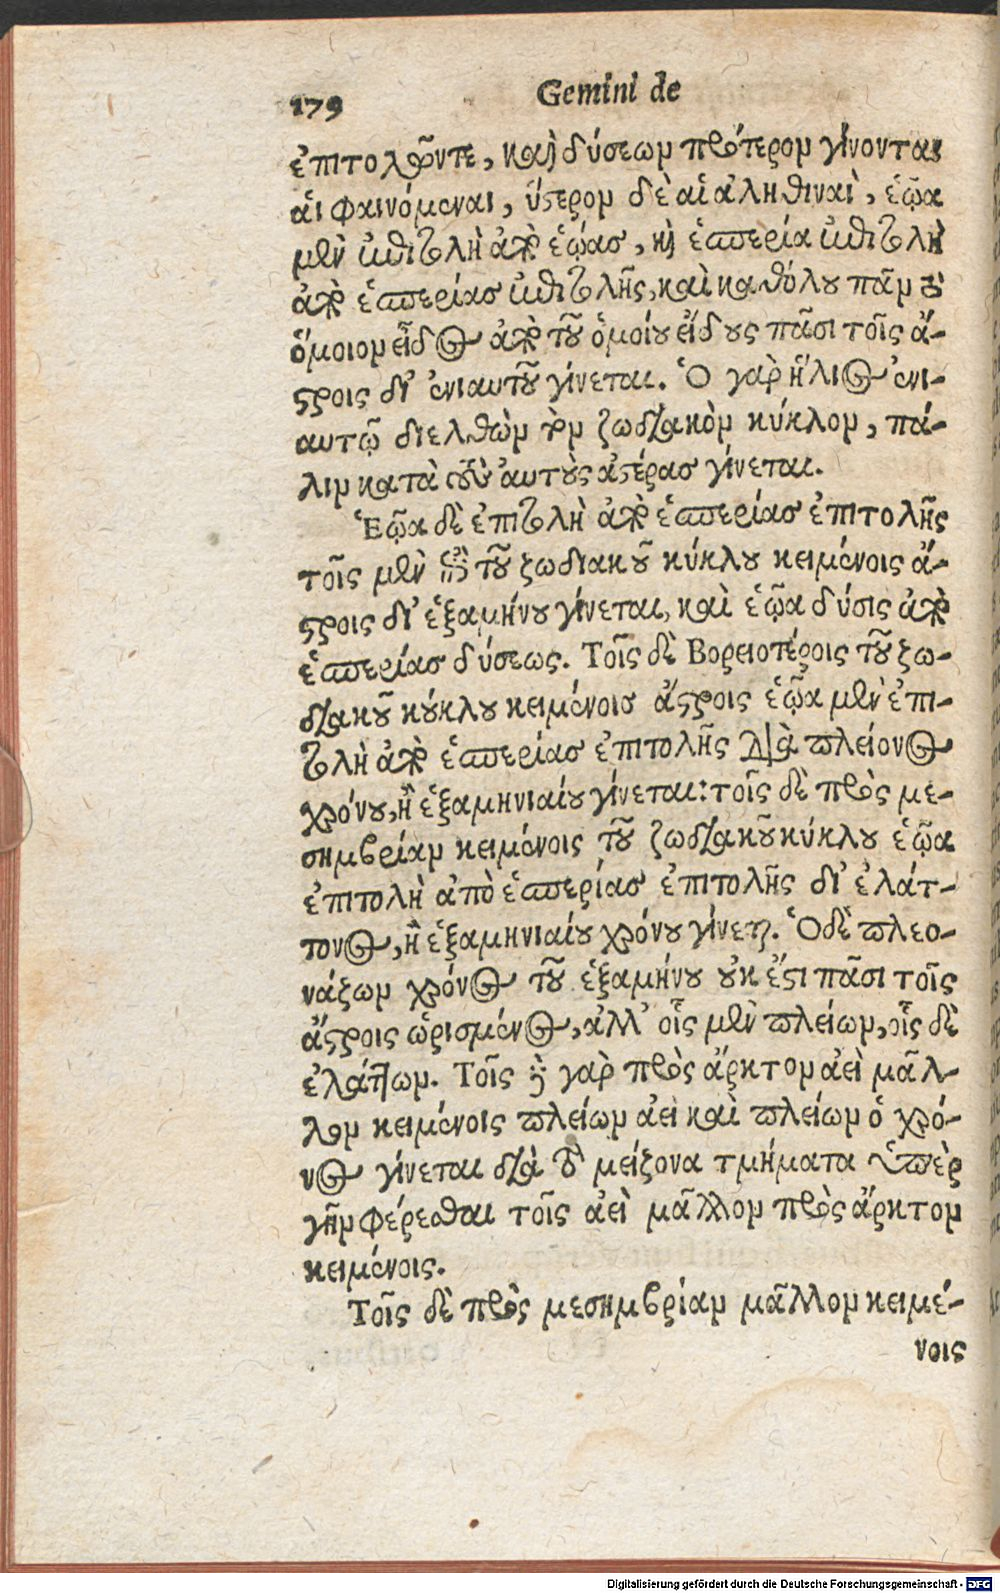 179 Gemini de
ἐπιτολῶντε, καὶ δύσεωμ πρότερομ γίνονται
αἱ φαινόμεναι, ὕστερομ δὲ αἱ ἀληθιναὶ, ἑῷα
μὲν ἐπιτολὴ ἀπὸ ἑῴας, καὶ ἑσπερία ἐπιτολὴ
ἀπὸ ἑσπερίας ἐπιτολῆς, καὶ καθόλου πᾶμ τὸ
ὅμοιομ εἶδος ἀπὸ τοῦ ὁμοίου εἴδους πᾶσι τοῖς ἄ-
στροις δι’ ἐνιαυτοῦ γίνεται. Ὁ γὰρ ἥλιος ἐνι-
αυτῷ διελθὼμ τὸμ ζωδιακὸμ κύκλομ, πά-
λιμ κατὰ τοὺς αυτοὺς ἀστέρας γίνεται.
Ἑῷα δὲ ἐπιτολὴ ἀπὸ ἑσπερίας ἐπιτολῆς
τοῖς μὲν ἐπὶ τοῦ ζωδιακοῦ κύκλου κειμένοις ἄ-
στροις δι’ ἑξαμήνου γίνεται, καὶ ἑῷα δύσις ἀπὸ
ἑσπερίας δύσεως. Τοῖς δὲ Βορειοτέροις τοῦ ζω-
διακοῦ κύκλου κειμένοις ἄστροις ἑῷα μὲν ἐπι-
τολὴ ἀπὸ ἑσπερίας ἐπιτολῆς διὰ πλείονος
χρόνου, ἢ ἑξαμηνιαίου γίνεται: τοῖς δὲ πρὸς με-
σημβρίαμ κειμένοις τοῦ ζωδιακοῦ κύκλου ἑῷα
ἐπιτολὴ ἀπὸ ἑσπερίας ἐπιτολῆς δι’ ἐλάτ-
τονος, ἢ ἑξαμηνιαίου χρόνου γίνεται. Ὁ δὲ πλεο-
νάζωμ χρόνος τοῦ ἑξαμήνου οὐκ ἔστι πᾶσι τοῖς
ἄστροις ὡρισμένος, ἀλλ’ οἷς μὲν πλείωμ, οἷς δὲ
ἐλάττωμ. Τοῖς μὲν γὰρ πρὸς ἄρκτομ ἀεὶ μᾶλ-
λομ κειμένοις πλείωμ ἀεὶ καὶ πλείωμ ὁ χρό-
νος γίνεται διὰ τὸ μείζονα τμήματα ὑπὲρ
γῆμ φέρεσθαι τοῖς ἀεὶ μᾶλλομ πρὸς ἄρκτομ
κειμένοις.
Τοῖς δὲ πρὸς μεσημβρίαμ μᾶλλομ κειμέ-
νοις
Digitalisierung gefördert durch die Deutsche Forschungsgemeinschaft - DFG